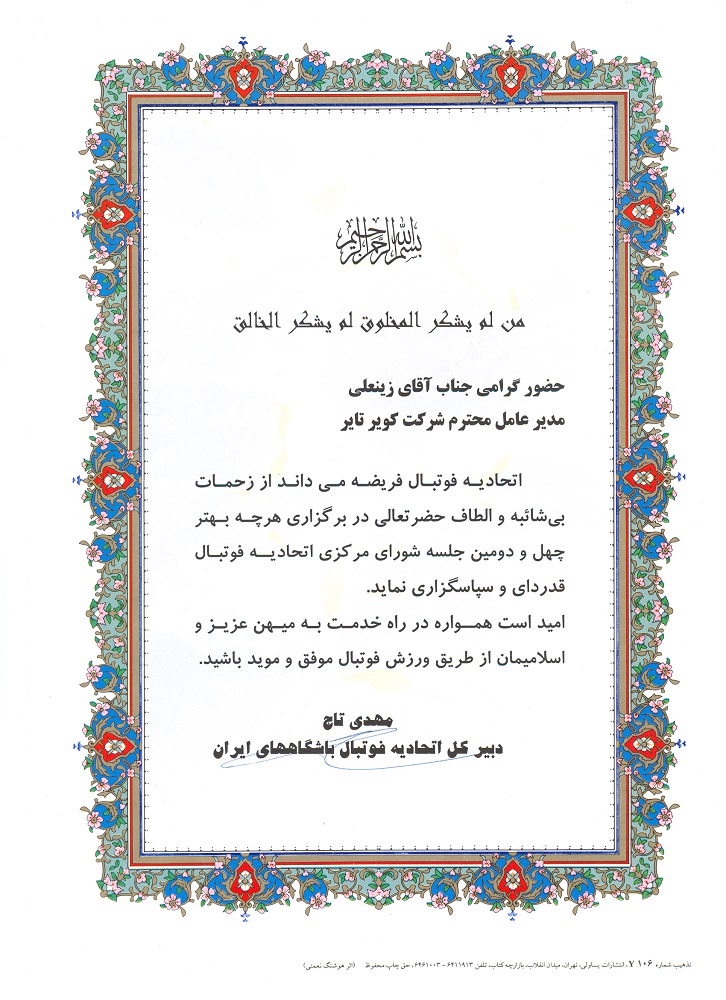 بسم الله الرحمن الرحیم
من لم یشکر المخلوق لم یشکر الخالق
حضور گرامی جناب آقای زینعلی
مدیر عامل محترم شرکت کویر تایر
اتحادیه فوتبال فریضه می داند از زحمات
بی‌شائبه و الطاف حضرتعالی در برگزاری هرچه بهتر
چهل و دومین جلسه شورای مرکزی اتحادیه فوتبال
قدردای و سپاسگزاری نماید.
امید است همواره در راه خدمت به میهن عزیز و
اسلامیمان از طریق ورزش فوتبال موفق و موید باشید.
مهدی تاج
دبیر کل اتحادیه فوتبال باشگاههای ایران
تذهیب شماره ۱۰۶ ۷، انتشارات یساولی، تهران، میدان انقلاب، بازارچه کتاب، تلفن ۶۴۱۱۹۱۳ - ۶۴۶۱۰۰۳، حق چاپ محفوظ (اثر هوشنگ نعمتی)